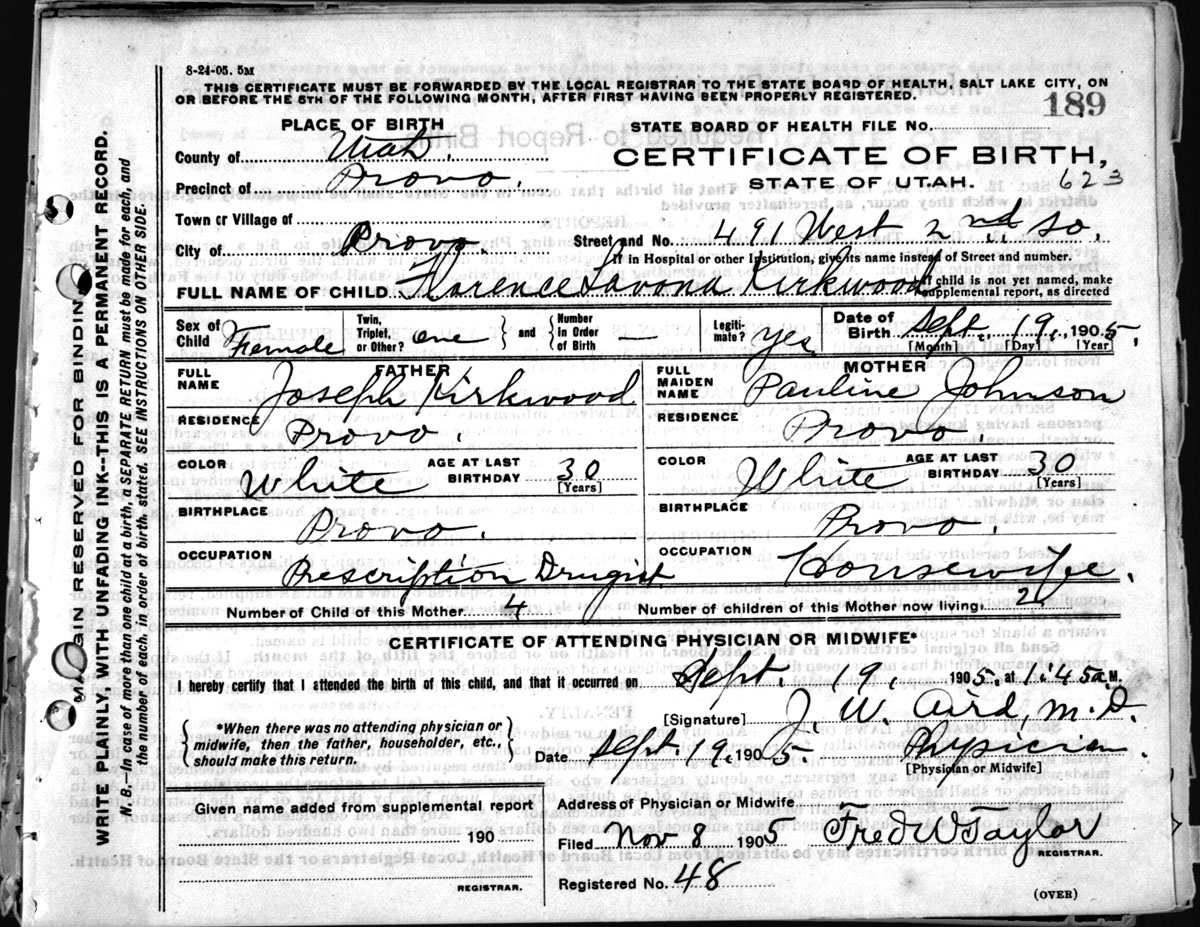 8-24-05. 5M
THIS CERTIFICATE MUST BE FORWARDED BY THE LOCAL REGISTRAR TO THE STATE BOARD OF HEALTH, SALT LAKE CITY, ON
OR BEFORE THE 5TH OF THE FOLLOWING MONTH, AFTER FIRST HAVING BEEN PROPERLY REGISTERED.
189
PLACE OF BIRTH
STATE BOARD OF HEALTH FILE No.
County of Utah.
CERTIFICATE OF BIRTH,
Precinct of Provo.
STATE OF UTAH. 623
Town or Village of
City of Provo.
Street and No. 491 West 2nd. So.
If in Hospital or other Institution, give its name instead of Street and number.
FULL NAME OF CHILD Florence Lavona Kirkwood
If child is not yet named, make
supplemental report, as directed
Sex of Child Female
Twin, Triplet, or Other? one
and
Number in Order of Birth —
Legiti-mate? yes
Date of Birth Sept. 19, 1905.
[Month] [Day] [Year]
FATHER
FULL NAME Joseph Kirkwood
MOTHER
FULL MAIDEN NAME Pauline Johnson
RESIDENCE Provo.
RESIDENCE Provo.
COLOR White
AGE AT LAST BIRTHDAY 30
[Years]
COLOR White
AGE AT LAST BIRTHDAY 30
[Years]
BIRTHPLACE Provo.
BIRTHPLACE Provo.
OCCUPATION Prescription Drugist
OCCUPATION Housewife.
Number of Child of this Mother 4
Number of children of this Mother now living: 2
CERTIFICATE OF ATTENDING PHYSICIAN OR MIDWIFE*
I hereby certify that I attended the birth of this child, and that it occurred on Sept. 19, 1905, at 1:45 a.M.
*When there was no attending physician or
midwife, then the father, householder, etc.,
should make this return.
[Signature] J. W. Aird, M.D.
Date Sept. 19, 1905.
Physician.
[Physician or Midwife]
Given name added from supplemental report
190
REGISTRAR.
Address of Physician or Midwife
Filed Nov 8 1905
Fred W Taylor
REGISTRAR.
Registered No. 48
(OVER)
MARGIN RESERVED FOR BINDING
WRITE PLAINLY, WITH UNFADING INK--THIS IS A PERMANENT RECORD.
N. B.--In case of more than one child at a birth, a SEPARATE RETURN must be made for each, and
the number of each, in order of birth, stated. SEE INSTRUCTIONS ON OTHER SIDE.